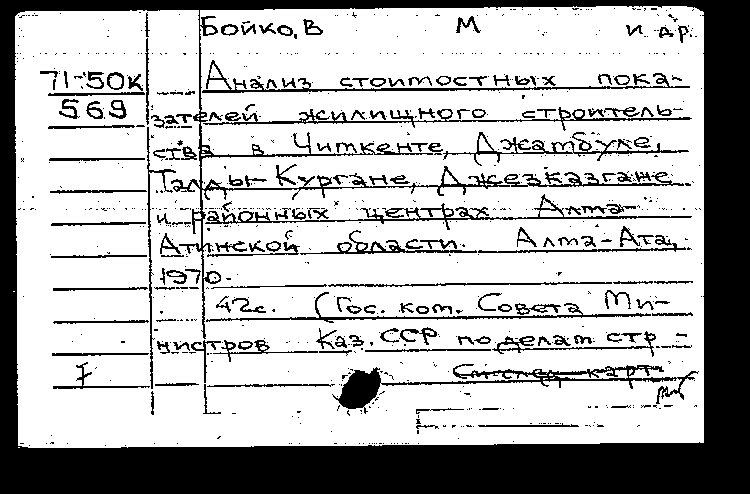 Бойко, В М и др.
71-50к Анализ стоимостных пока-
569 зателей жилищного строитель-
ства в Чимкенте, Джамбуле,
Талды-Кургане, Джезказгане
и районных центрах Алма-
Атинской области. Алма-Ата,
1970.
42с. (Гос. ком. Совета Ми-
нистров Каз. ССР по делам стр-
См след. карт